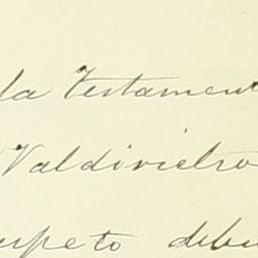 la testament
Valdivielso
respeto debi